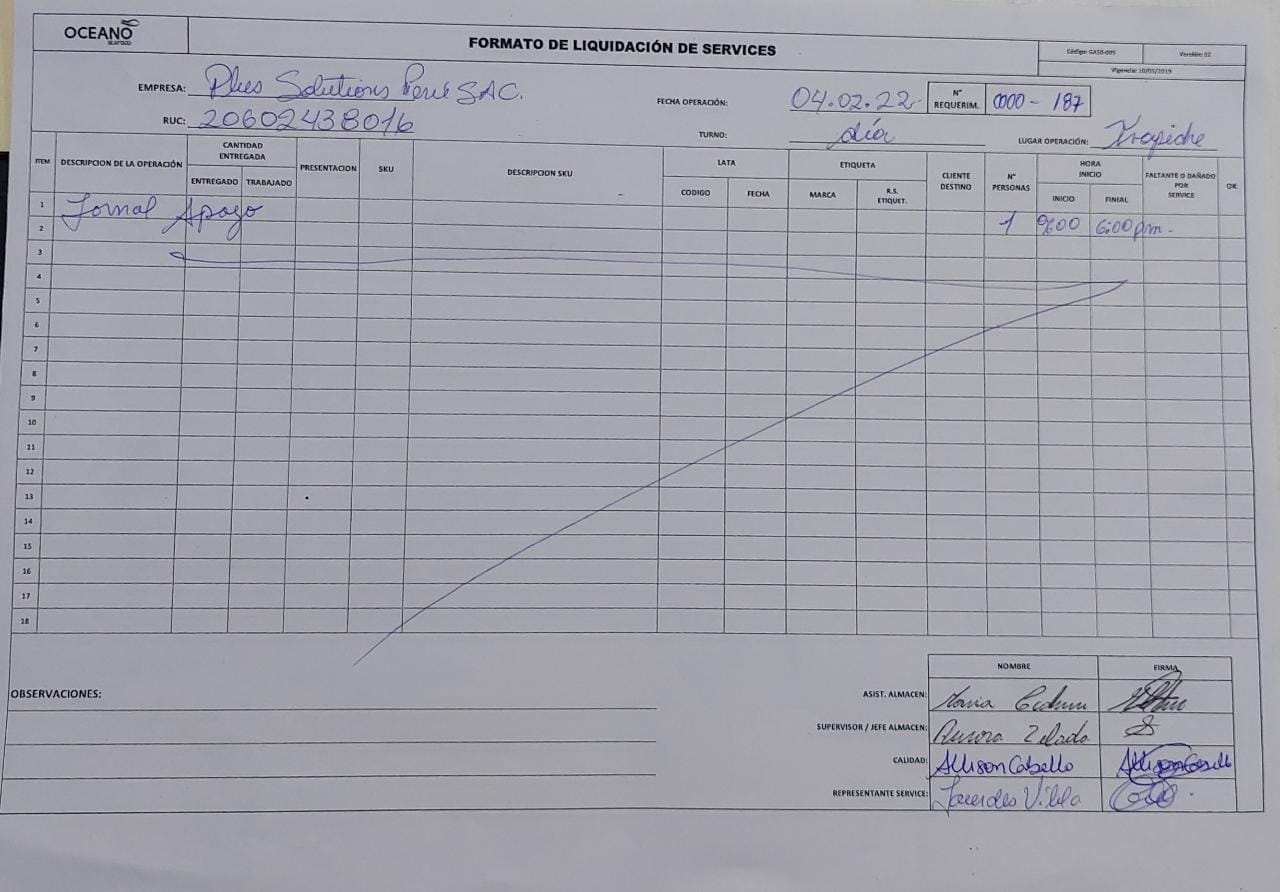 OCEANO
SEAFOOD
FORMATO DE LIQUIDACIÓN DE SERVICES
Código: GASO-005
Versión: 02
Vigencia: 10/05/2019
EMPRESA: Plus Solutions Perú SAC.
FECHA OPERACIÓN: 04.02.22.
N° REQUERIM. 0000 - 187
RUC: 20602438016
TURNO: día
LUGAR OPERACIÓN:
ITEM
DESCRIPCION DE LA OPERACIÓN
CANTIDAD ENTREGADA
ENTREGADO
TRABAJADO
PRESENTACION
SKU
DESCRIPCION SKU
LATA
CODIGO
FECHA
ETIQUETA
MARCA
R.S. ETIQUET.
CLIENTE DESTINO
N° PERSONAS
HORA INICIO
INICIO
FINIAL
FALTANTE O DAÑADO POR SERVICE
OK
1 Jornal Apoyo
2 1 9:00 6:00 pm.
3
4
5
6
7
8
9
10
11
12
13
14
15
16
17
18
OBSERVACIONES:
NOMBRE
FIRMA
ASIST. ALMACEN: Maria
SUPERVISOR / JEFE ALMACEN: Aurora Zelada
CALIDAD: Allison Cabello
REPRESENTANTE SERVICE: Lourdes Vilela